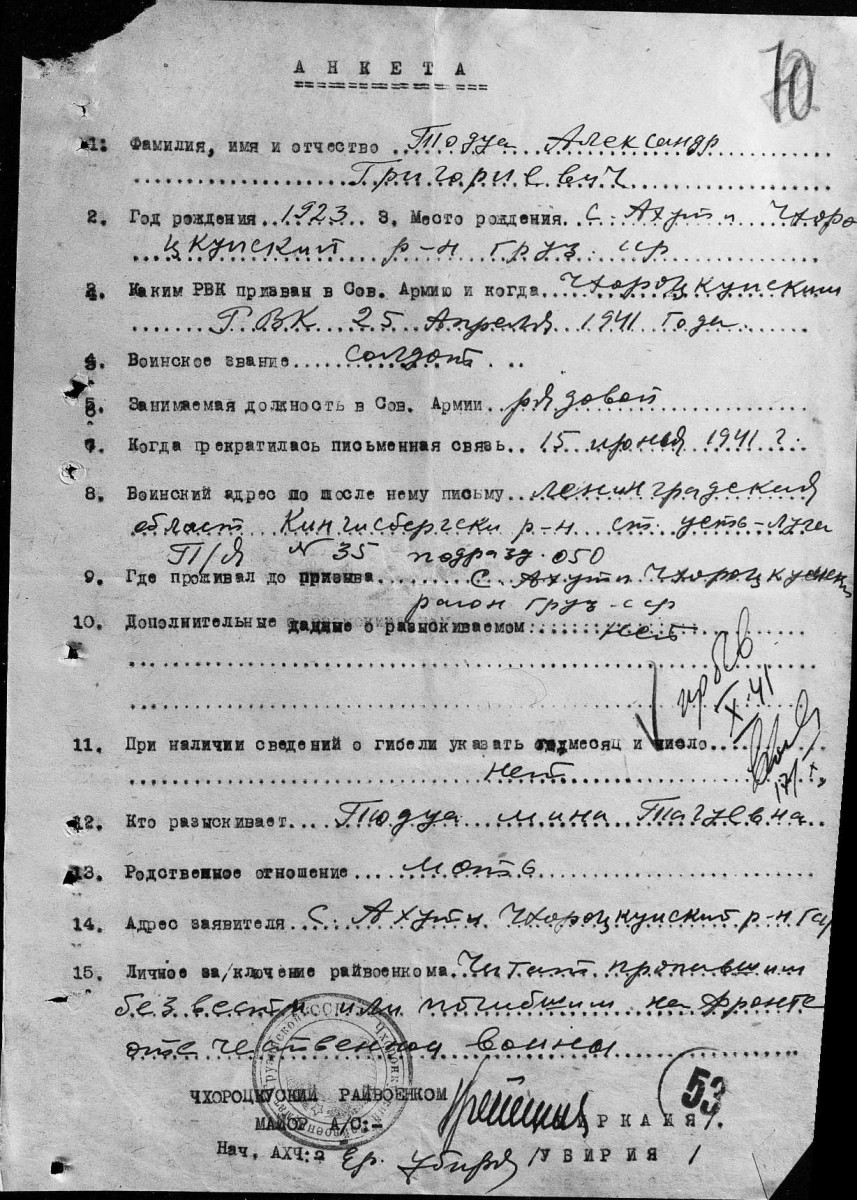 10
АНКЕТА
1. Фамилия, имя и отчество Тодуа Александр
Григориевич
2. Год рождения 1923 3. Место рождения с. Ахути Чхоро
цкуиский р-н груз сср
Каким РВК призван в Сов. Армию и когда Чхороцкуиским
РВК 25 Апреля 1941 года
Воинское звание солдат
Занимаемая должность в Сов. Армии рядовой
7. Когда прекратилась письменная связь 15 июня 1941 г.
8. Воинский адрес по после нему письму Ленинградская
област Кингисбергски р-н ст. усть-Луга
П/Я N 35 подразд. 050
9. Где проживал до призыва с. Ахути Чхороцкуиски
раион груз-сср
10. Дополнительные данные о разыскиваемом нет
X-41
11. При наличии сведений о гибели указать год месяц и число
нет
12. Кто разыскивает Тодуа мина Тагуевна
13. Родственное отношение мать
14. Адрес заявителя с. Ахути Чхороцкуиский р-н
15. Личное за/ключение райвоенкома Читат пропавшим
без вести или погибшим на фронте
отечественной воины
ЧХОРОЦКУСКИЙ РАЙВОЕНКОМ
53
МАЙОР А/С:- ИРКАМЯ/.
Нач. АХЧ: /УБИРИЯ/